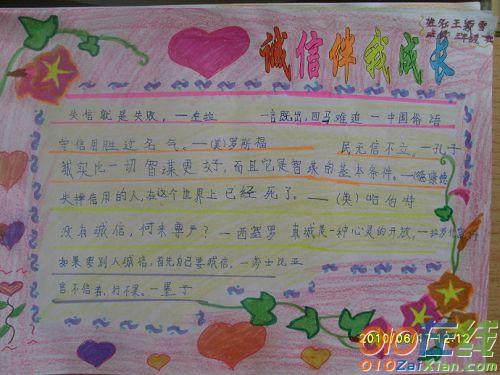 诚信伴我成长
失信就是失败，—左拉 一言既出，四马难追 —中国俗语
守信用胜过名气。—(美)罗斯福 民无信不立。—孔子
诚实比一切智谋更好，而且它是智谋的基本条件。—康德
失掉信用的人，在这个世界上已经死了。—(英)哈伯特
没有诚信，何来尊严？—西塞罗 真诚是一种心灵的开放。
如果要别人诚信，首先自己要诚信。—莎士比亚
言不信者，行不果。—墨子
2010/06/17 12:12
010在线
010ZaiXian.com